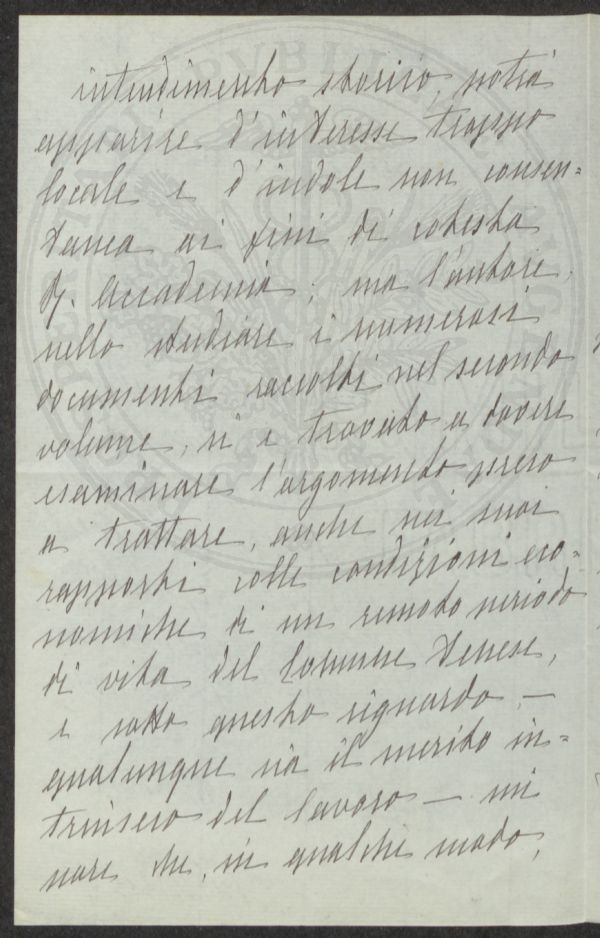 intendimento storico, potrà
apparire d'interesse troppo
locale e d'indole non consen-
tanea ai fini di cotesta
R. Accademia; ma l'autore,
nello studiare i numerosi
documenti raccolti nel secondo
volume, si è trovato a dovere
esaminare l'argomento preso
a trattare, anche nei suoi
rapporti colle condizioni eco-
nomiche di un remoto periodo
di vita del Comune Senese,
e sotto questo riguardo, —
qualunque sia il merito in-
trinseco del lavoro — mi
pare che, in qualche modo,